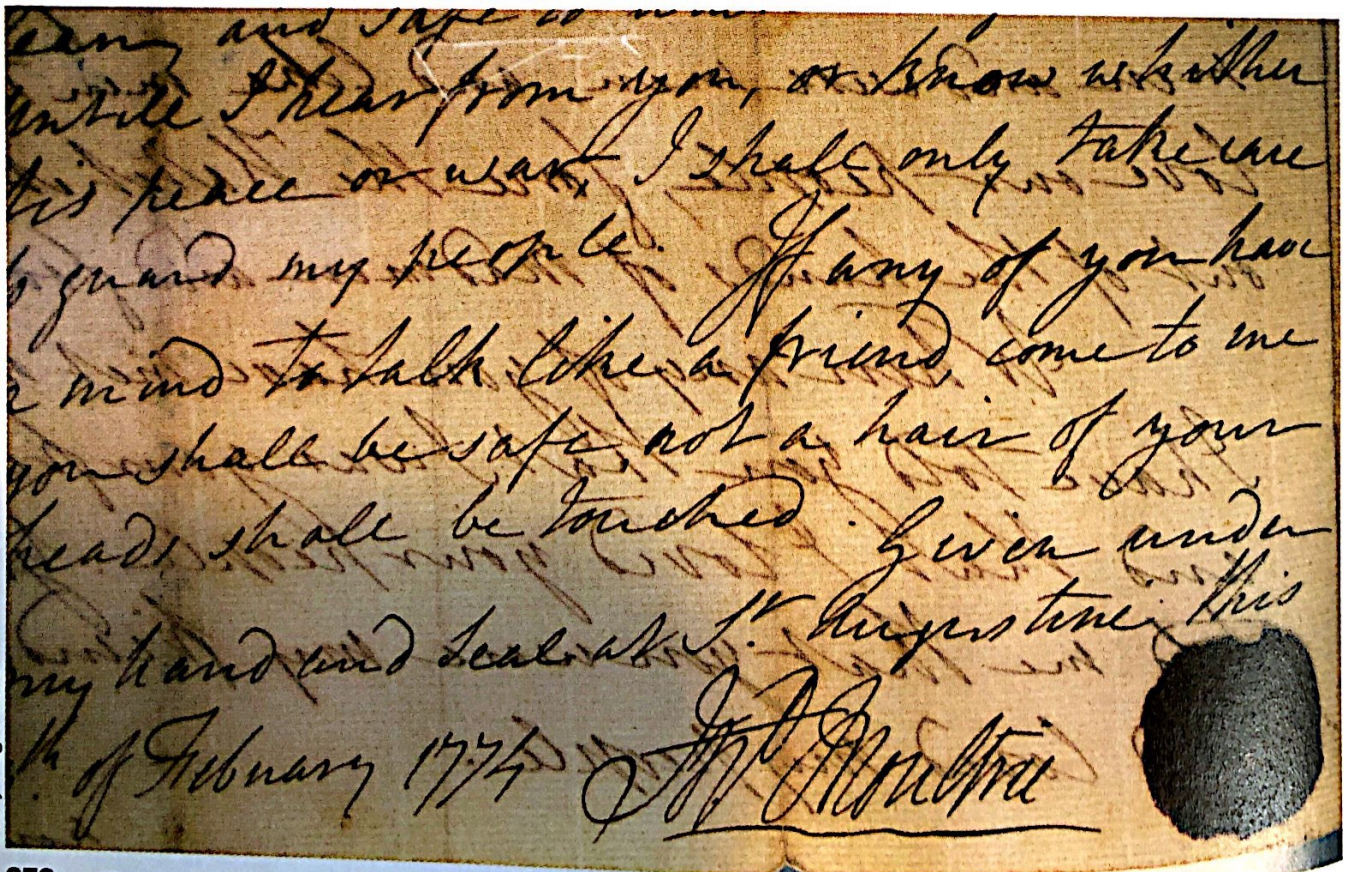 and safe to
untill I hear from you, or know whither
tis peace or war, I shall only take care
guard my people. If any of you have
mind to talk like a friend, come to me
you shall be safe not a hair of your
heads shall be touched. Given under
my hand and Seal at St Augustine this
th. of February 1774 Jno Moultrie